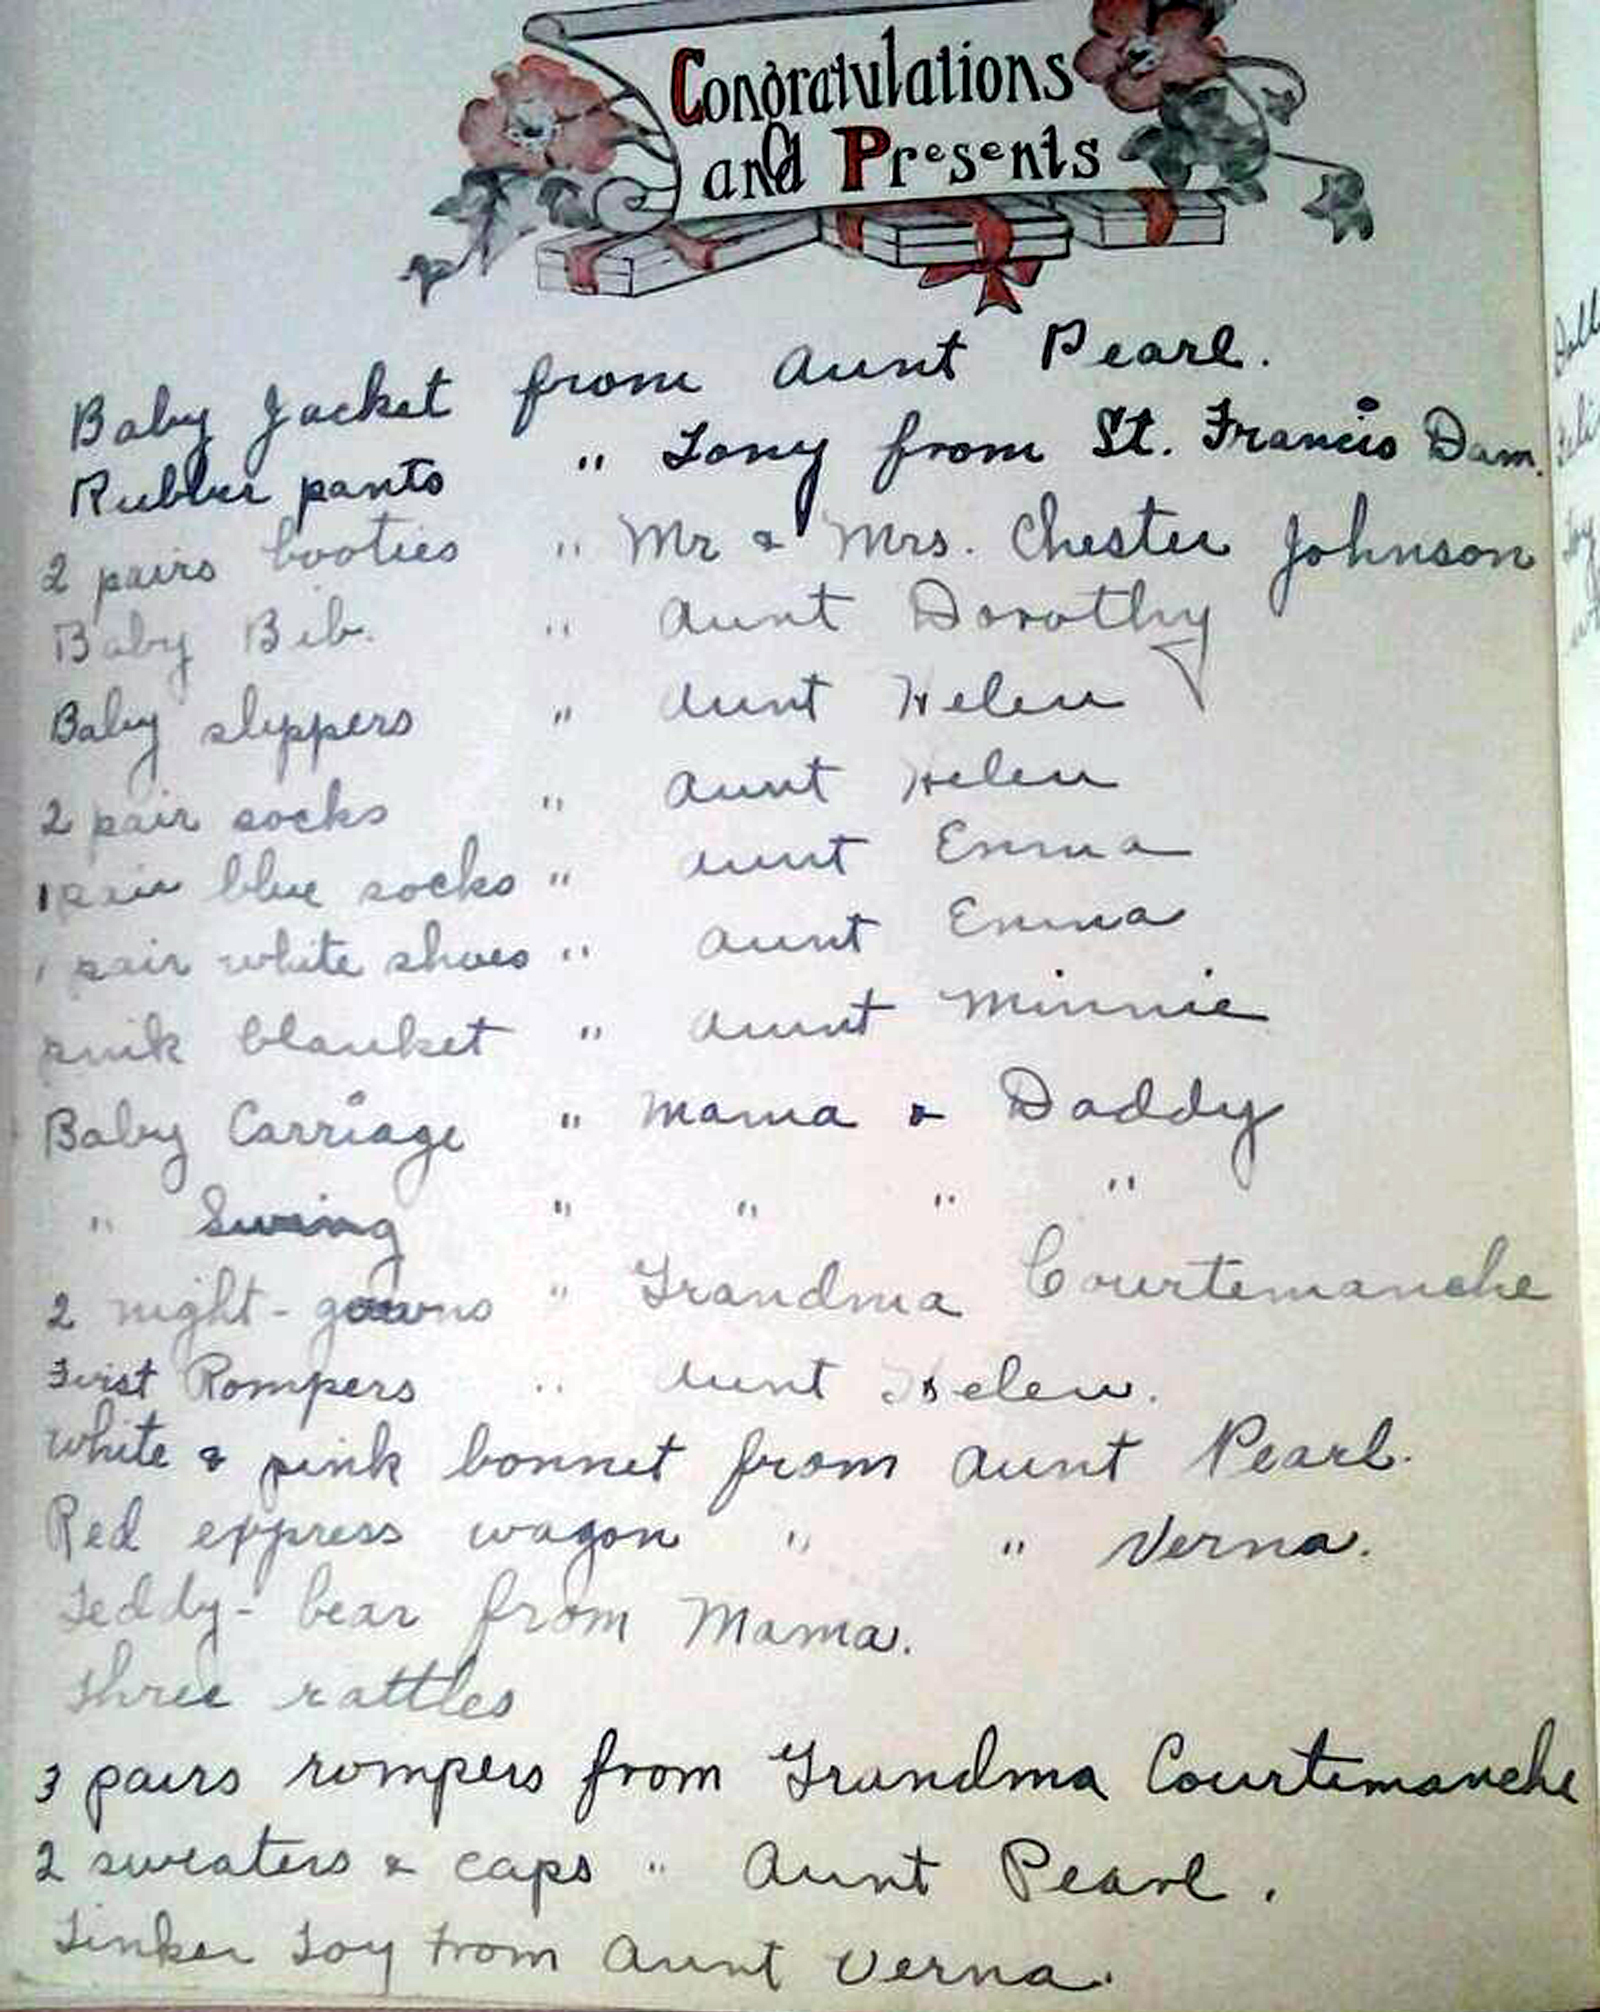 Congratulations
and Presents
Baby Jacket from Aunt Pearl.
Rubber pants " Tony from St. Francis Dam.
2 pairs booties " Mr & Mrs. Chester Johnson
Baby Bib. " Aunt Dorothy
Baby slippers " Aunt Helen
2 pair socks " Aunt Helen
1 pair blue socks " Aunt Emma
1 pair white shoes " Aunt Emma
pink blanket " Aunt Minnie
Baby Carriage " Mama & Daddy
" Swing " " " "
2 night-gowns " Grandma Courtemanche
First Rompers " Aunt Helen.
White & pink bonnet from Aunt Pearl.
Red express wagon " " Verna.
Teddy-bear from Mama.
Three rattles
3 pairs rompers from Grandma Courtemanche
2 sweaters & caps " Aunt Pearl.
Tinker Toy from Aunt Verna.